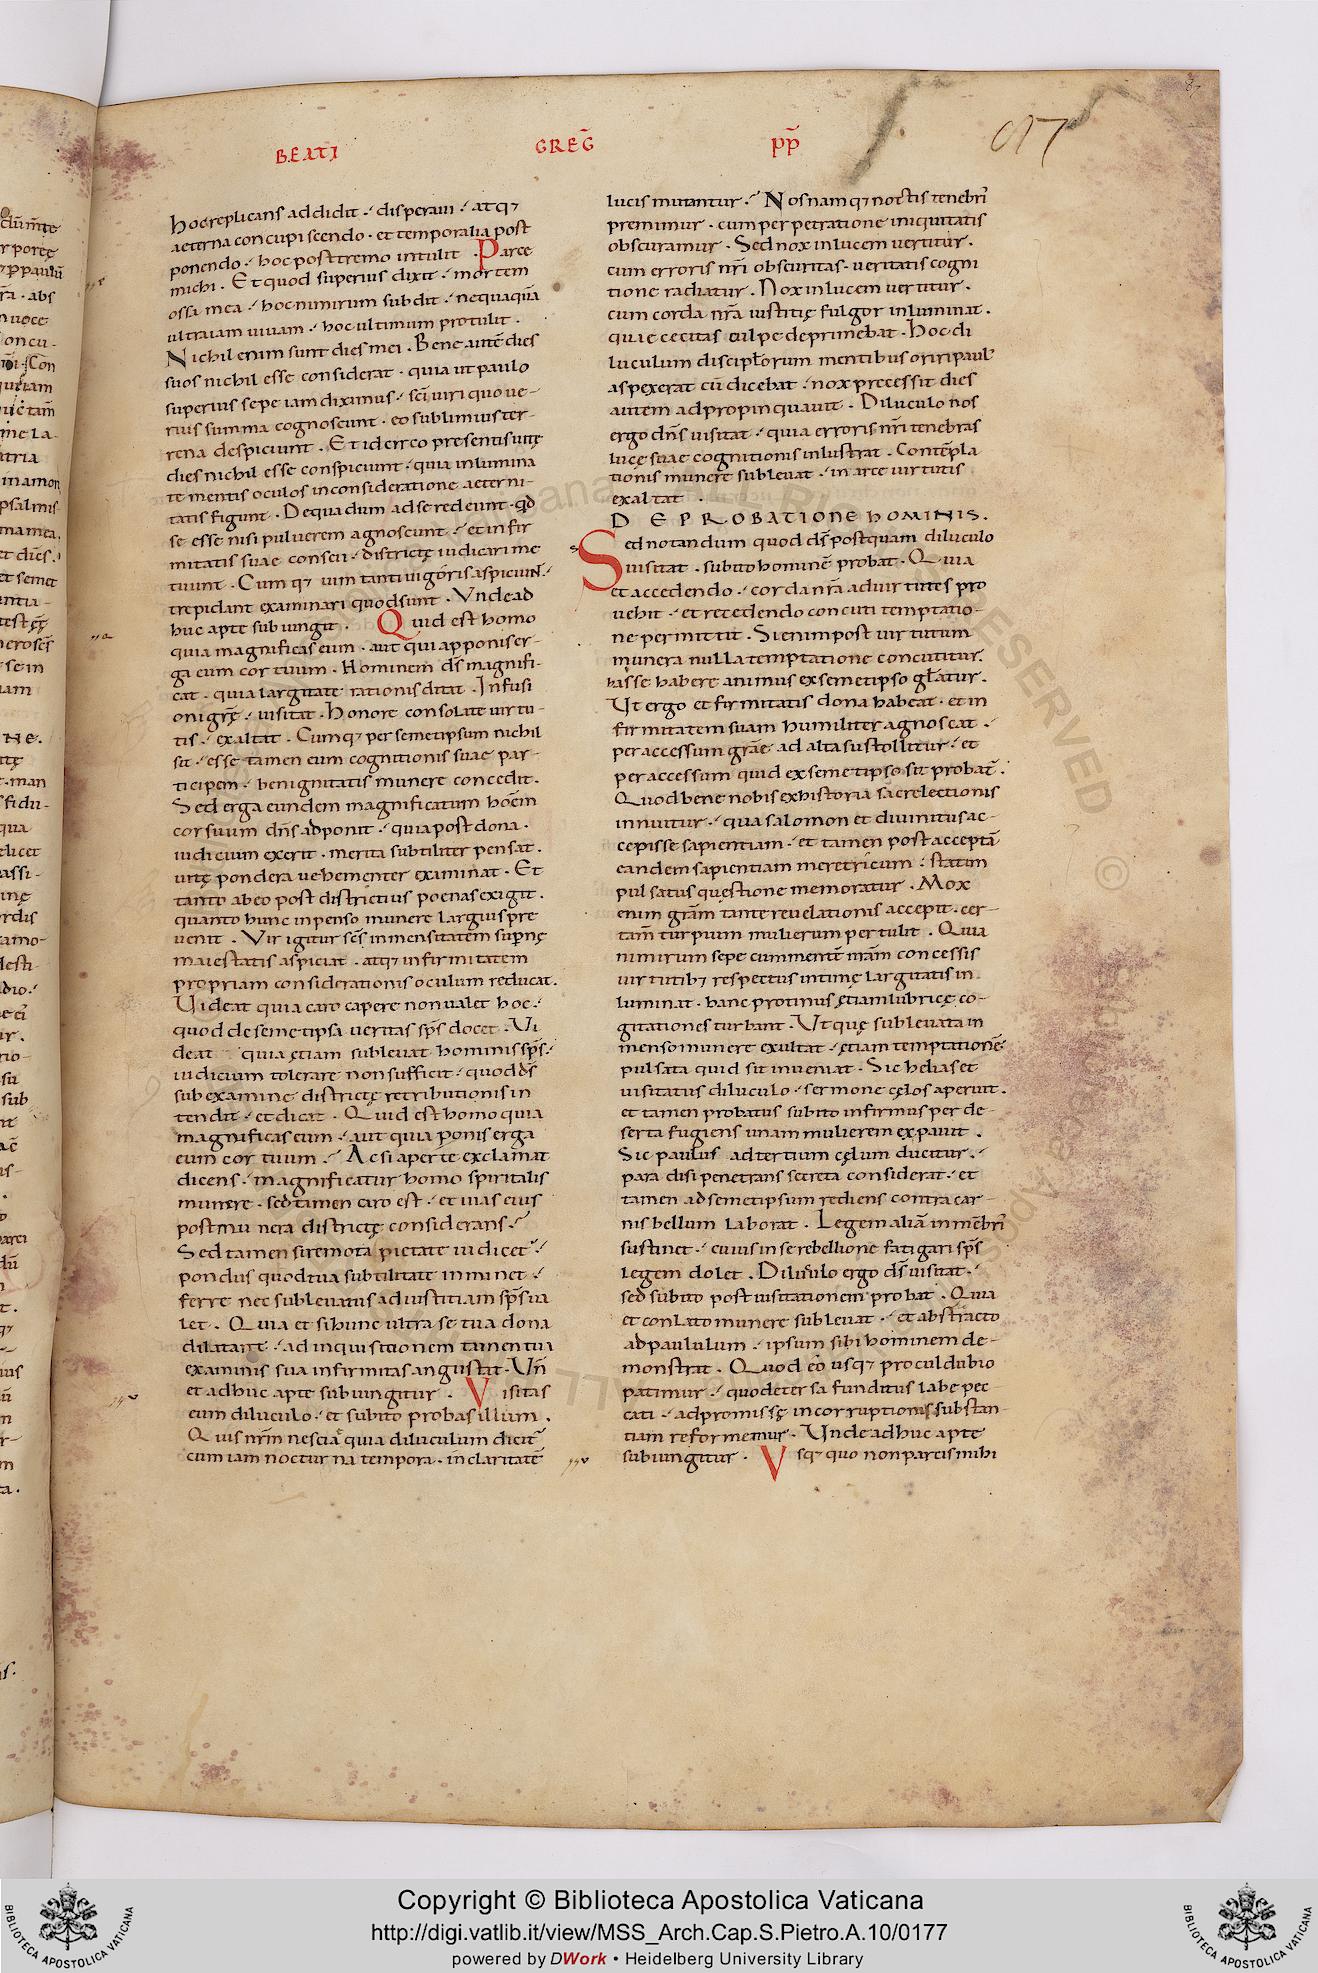 BEATI GREG̅ PP̅
87
hoc replicans addidit · disperaui · atq;
aeterna concupiscendo · et temporalia post
ponendo · hoc postremo intulit · Parce
michi · Et quod superius dixit · mortem
ossa mea · hoc nimirum subdit · nequaquā
ultra iam uiuam · hoc ultimum protulit ·
Nichil enim sunt dies mei · Bene autē dies
suos nichil esse considerat · quia ut paulo
superius sepe iam diximus · sc̄i uiri quo ue-
rius summa cognoscunt · eo sublimius ter-
rena despiciunt · Et idcirco presentis uitę
dies nichil esse conspiciunt · quia inlumina
te mentis oculos in consideratione aeterni-
tatis figunt · De qua dum ad se redeunt · qd̄
se esse nisi puluerem agnoscunt · et infir
mitatis suae conscii · districtę iudicari me
tuunt · Cumq; uim tanti uigoris aspiciunt ·
trepidant examinari quod sunt · Unde ad
huc apte subiungit · Quid est homo
quia magnificas eum · aut qui apponis er-
ga eum cor tuum · Hominem ds̄ magnifi-
cat · quia largitate rationis ditat · Infusi
oni grę̄ · uisitat · Honore consolate uirtu-
tis · exaltat · Cumq; per semetipsum nichil
sit · esse tamen eum cognitionis suae par-
ticipem · benignitatis munere concedit ·
Sed erga eundem magnificatum hoēm
cor suum dn̄s adponit · quia post dona ·
iudicium exerit · merita subtiliter pensat ·
uitę pondera uehementer examinat · Et
tanto ab eo post districtius poenas exigit ·
quanto hunc inpenso munere largius pre
uenit · Vir igitur sc̄s inmensitatem supernę
maiestatis aspiciat · atq; infirmitatem
propriam considerationis oculum reducat ·
Uideat quia caro capere non ualet hoc ·
quod de semetipsa ueritas sp̄s docet · Ui
deat quia ętiam subleuat hominis sp̄s ·
iudicium tolerare non sufficit · quod ds̄
sub examine districtę retributionis in
tendit · et dicat · Quid est homo quia
magnificas eum · aut quia ponis erga
eum cor tuum · Ac si aperte exclamat
dicens · magnificatur homo spiritalis
munere · sed tamen caro est · et uias eius
post munera districtę considerans ·
Sed tamen si remota pietate iudicet ·
pondus quod tua subtilitate inminet ·
ferre nec subleuatus ad iustitiam sp̄s ua
let · Quia et si hunc ultra se tua dona
dilatant · ad inquisitionem tamen tui
examinis sua infirmitas angustat · Un̄
et adhuc apte subiungitur · Visitas
eum diluculo · et subito probas illum ·
Quis nr̄m nesciat quia diluculum dicit̄
cum iam nocturna tempora · in claritatē
lucis mutantur · Nos namq; noctis tenebri
premimur · cum perpetratione iniquitatis
obscuramur · Sed nox in lucem uertitur ·
cum erroris nr̄i obscuritas · ueritatis cogni
tione radiatur · Nox in lucem uertitur ·
cum corda nr̄a iustitię fulgor inluminat ·
quae cecitas culpe deprimebat · Hoc di
luculum discipłorum mentibus oriri paul'
aspexerat cū dicebat · nox precessit dies
autem adpropinquauit · Diluculo nos
ergo dn̄s uisitat · quia erroris nr̄i tenebras
lucę suae cognitionis inlustrat · Contēpla
tionis munere subleuat · in arce uirtutis
exaltat ·
DE PROBATIONE HOMINIS ·
Sed notandum quod ds̄ postquam diluculo
uisitat · subito hominē probat · Quia
et accedendo · corda nr̄a ad uirtutes pro
uehit · et recedendo concuti temptatio-
ne permittit · Si enim post uirtutum
munera nulla temptatione concutitur ·
has se habere animus ex semetipso gl̄atur ·
Ut ergo et firmitatis dona habeat · et in
firmitatem suam humiliter agnoscat ·
per accessum grāe ad alta sustollitur · et
per accessum quid ex semetipso sit probat̄ ·
Quod bene nobis ex historia sacre lectionis
innuitur · qua salomon et diuinitus ac-
cepisse sapientiam · et tamen post acceptā
eandem sapientiam meretricum · statim
pulsatus quęstione memoratur · Mox
enim grām tante reuelationis accepit · cer-
tam̄ turpium mulierum pertulit · Quia
nimirum sepe cum mentē nr̄am concessis
uirtutib; respectus intimę largitatis in
luminat · hanc protinus ętiam lubricę co-
gitationes turbant · Ut quę subleuata in
menso munere exultat · ętiam temptationē
pulsata quid sit inueniat · Sic helias et
uisitatus diluculo · sermone cęlos aperuit ·
et tamen probatus subito infirmus per de-
serta fugiens unam mulierem expauit ·
Sic paulus ad tertium cęlum ducitur ·
paradisi penetrans secreta considerat · et
tamen ad semetipsum rediens contra car-
nis bellum laborat · Legem aliā in mēbri
sustinet · cuius in se rebellione fatigari sp̄s
legem dolet · Diluculo ergo ds̄ uisitat ·
sed subito post uisitationem probat · Quia
et conlato munere subleuat · et abstracto
ad paululum · ipsum sibi hominem de-
monstrat · Quod eo usq; procul dubio
patimur · quo detersa funditus labe pec-
cati · ad promissę incorruptionis substan-
tiam reformemur · Unde adhuc apte
subiungitur · Vsq; quo non parcis mihi
Copyright © Biblioteca Apostolica Vaticana
http://digi.vatlib.it/view/MSS_Arch.Cap.S.Pietro.A.10/0177
powered by DWork • Heidelberg University Library
BIBLIOTECA APOSTOLICA VATICANA
BIBLIOTECA APOSTOLICA VATICANA